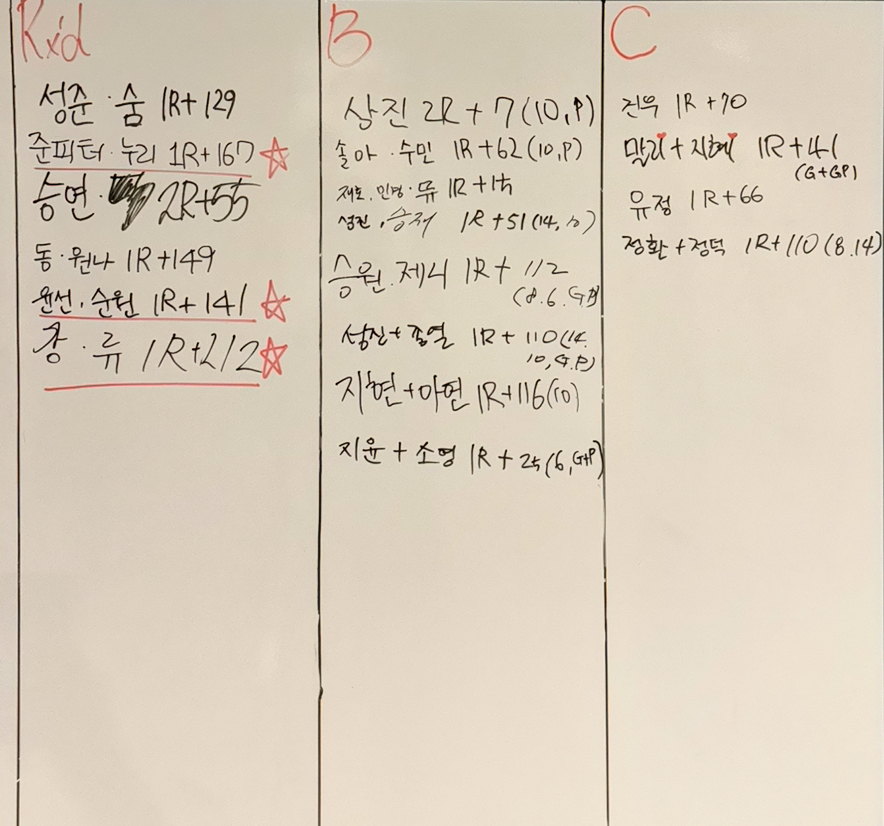 Rx'd
성준 · 숨 1R+129
준피터 · 누리 1R+167
승연 · 2R+55
동 · 원나 1R+149
윤선, 순원 1R+141
쭝 · 류 1R+212
B
상진 2R+7(10,P)
솔아 · 수민 1R+62(10,P)
재호, 민경 · 뮤 1R+15
성진, 승저 1R+51(14, 10)
승원. 제니 1R+112
(8.6.GP)
성진+종열 1R+110(14.
10,G.P)
지현+아연 1R+116(10)
지윤+소영 1R+25(6,G+P)
C
건우 1R+70
말리+지혜 1R+41
(G+GP)
유정 1R+66
정환+정덕 1R+110(8.14)